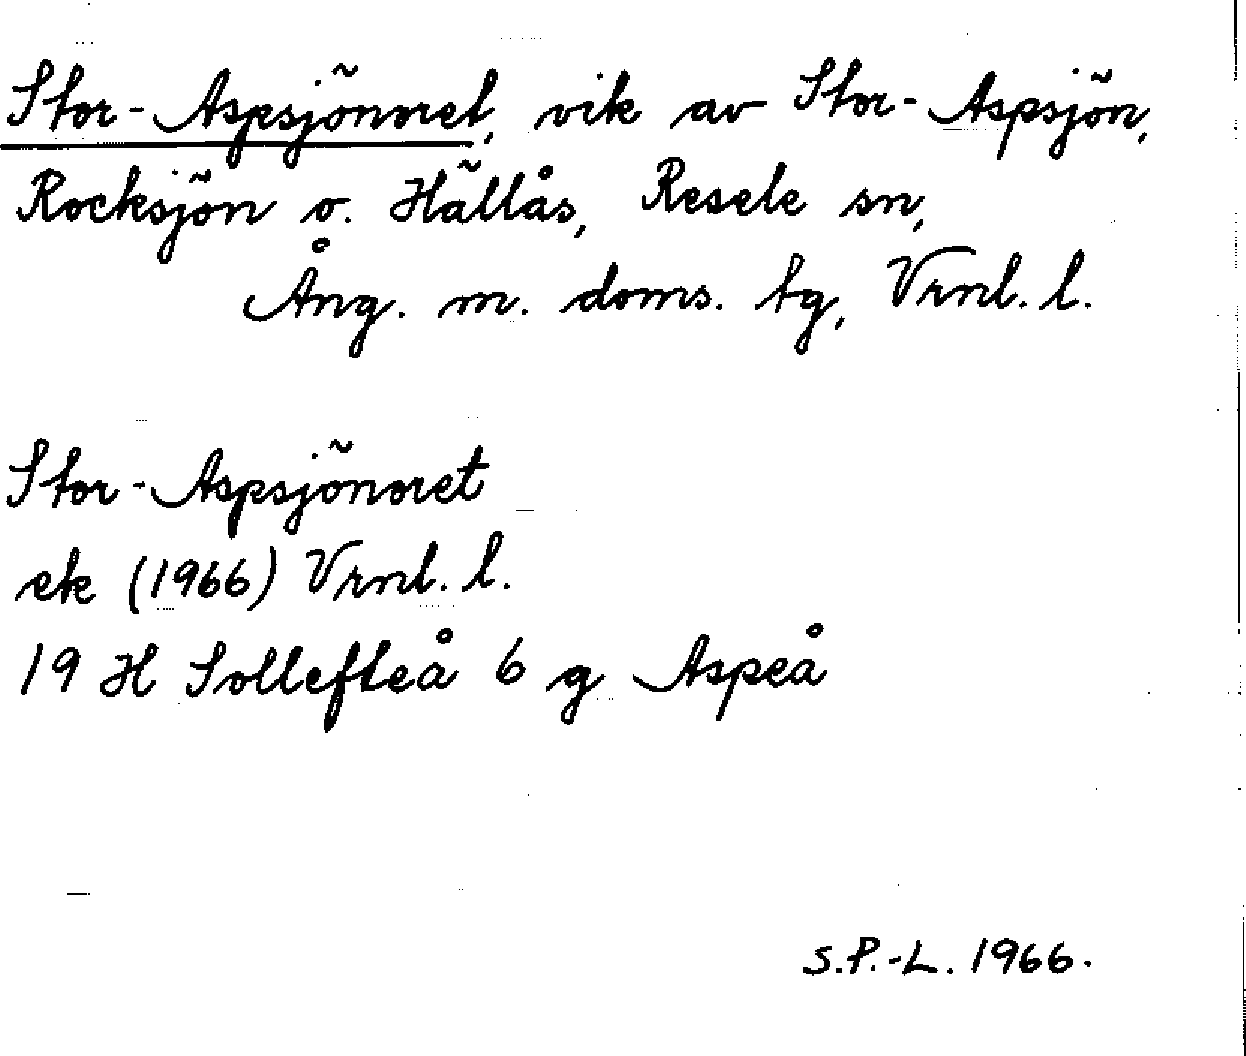 Stor-Aspsjönoret, vik av Stor-Aspsjön,
Rocksjön o. Hällås, Resele sn,
Ång. m. doms. tg, Vrnl. l.
Stor-Aspsjönoret
ek (1966) Vrnl. l.
19 H Sollefteå 6 g Aspeå
S.P.-L. 1966.